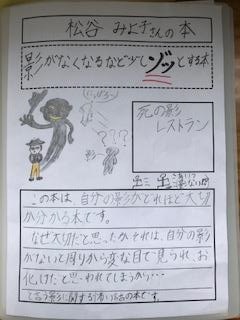 松谷みよ子さんの本
影がなくなるなど少しゾッとする本
死の影
レストラン
影
???
この本は、自分の影がどれほど大切
か分かる本です。
なぜ大切だと思ったかそれは、自分の影
がないと周りから変な目で見られ、お
化けだと思われてしまうから…
という影に関する怖い話の本です。